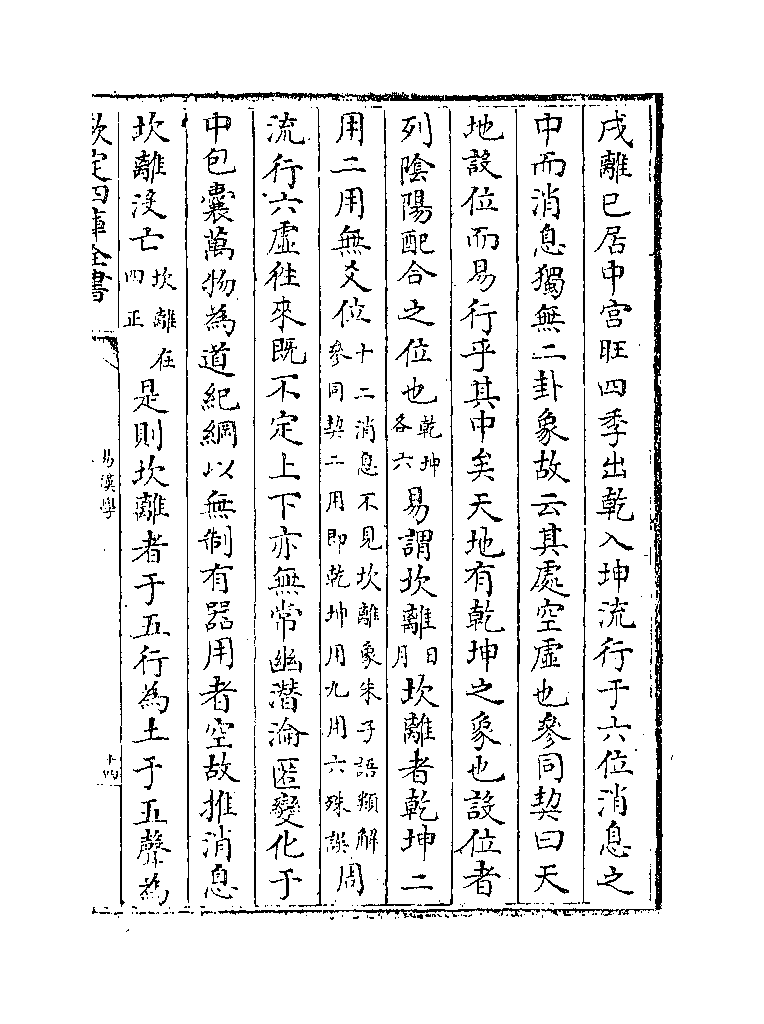 戌離已居中宫旺四季出乾入坤流行于六位消息之
中而消息獨無二卦象故云其處空虛也參同契曰天
地設位而易行乎其中矣天地有乾坤之象也設位者
列陰陽配合之位也乾坤各六易謂坎離日月坎離者乾坤二
用二用無爻位十二消息不見坎離象朱子語類解參同契二用即乾坤用九用六殊誤周
流行六虛往來既不定上下亦無常幽潛淪匿變化于
中包囊萬物為道紀綱以無制有器用者空故推消息
坎離没亡坎離在四正是則坎離者于五行為土于五聲為
欽定四庫全書
易漢學
十四